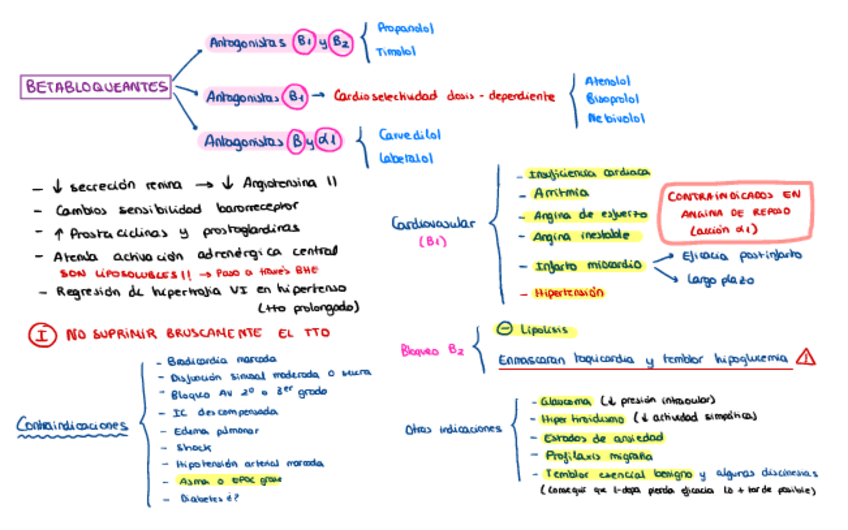 BETABLOQUEANTES
Antagonistas B1 y B2
Propanolol
Timolol
Antagonistas B1 → Cardioselectividad dosis-dependiente
Atenolol
Bisoprolol
Nebivolol
Antagonistas B y α1
Carvedilol
Labetalol
- ↓ secreción renina → ↓ Angiotensina II
- Cambios sensibilidad baroreceptor
- ↑ Prostaciclinas y prostaglandinas
- Atenúa activación adrenérgica central
SON LIPOSOLUBLES!! → Paso a través BHE
- Regresión de hipertrofia VI en hipertenso
(tto prolongado)
I NO SUPRIMIR BRUSCAMENTE EL TTO
Contraindicaciones
- Bradicardia marcada
- Disfunción sinusal moderada o severa
- Bloqueo AV 2º o 3er grado
- IC descompensada
- Edema pulmonar
- Shock
- Hipotensión arterial marcada
- Asma o EPOC grave
- Diabetes é?
Cardiovascular
(B1)
- Insuficiencia cardiaca
- Arritmia
- Angina de esfuerzo
- Angina inestable
- Infarto miocardio
→ Eficacia postinfarto
→ Largo plazo
- Hipertensión
CONTRAINDICADOS EN
ANGINA DE REPOSO
(acción α1)
Bloqueo B2
⊖ Lipolisis
Enmascaran taquicardia y temblor hipoglucemia ⚠
Otras indicaciones
- Glaucoma (↓ presión intraocular)
- Hipertiroidismo (↓ actividad simpática)
- Estados de ansiedad
- Profilaxis migraña
- Temblor esencial benigno y algunas discinesias
(conseguir que l-dopa pierda eficacia lo + tarde posible)